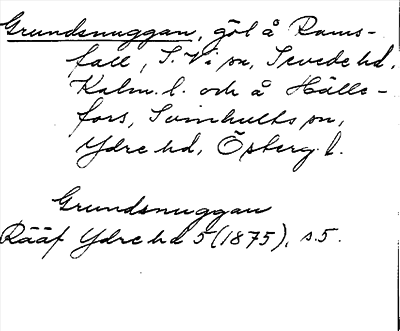 Grundsnuggan, göl å Rams-
fall, S. Vi sn, Sevede hd,
Kalm. l. och å Hälle-
fors, Svinhults sn,
Ydre hd, Östergl.
Grundsnuggan
Rääf Ydre hd 5 (1875), s. 5.